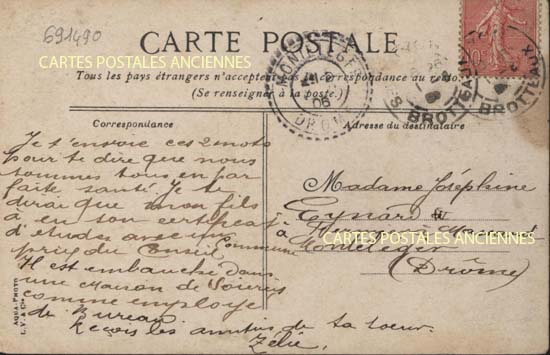 691490
CARTE POSTALE
CARTES POSTALES ANCIENNES
Tous les pays étrangers n'acceptent pas la correspondance au recto
(Se renseigner à la poste.)
MONTELEGER
06
DROME
BROTTEAUX
BROTTEAUX
10
Correspondance
Adresse du destinataire
Je t'envoie ces 2 mots
pour te dire que nous
sommes tous en par
faite santé. Je te
dirai que mon fils
à eu son certificat
d'études avec un
prix du Conseil
Il est embauché dans
une maison de Soieries
comme employé
de Bureau
Reçois les amitiés de ta soeur
Zélie.
Madame Joséphine
Eynard
à
CARTES POSTALES ANCIENNES
Monteleger
(Drôme)
AQUA-PHOTO
L. V. & Cie